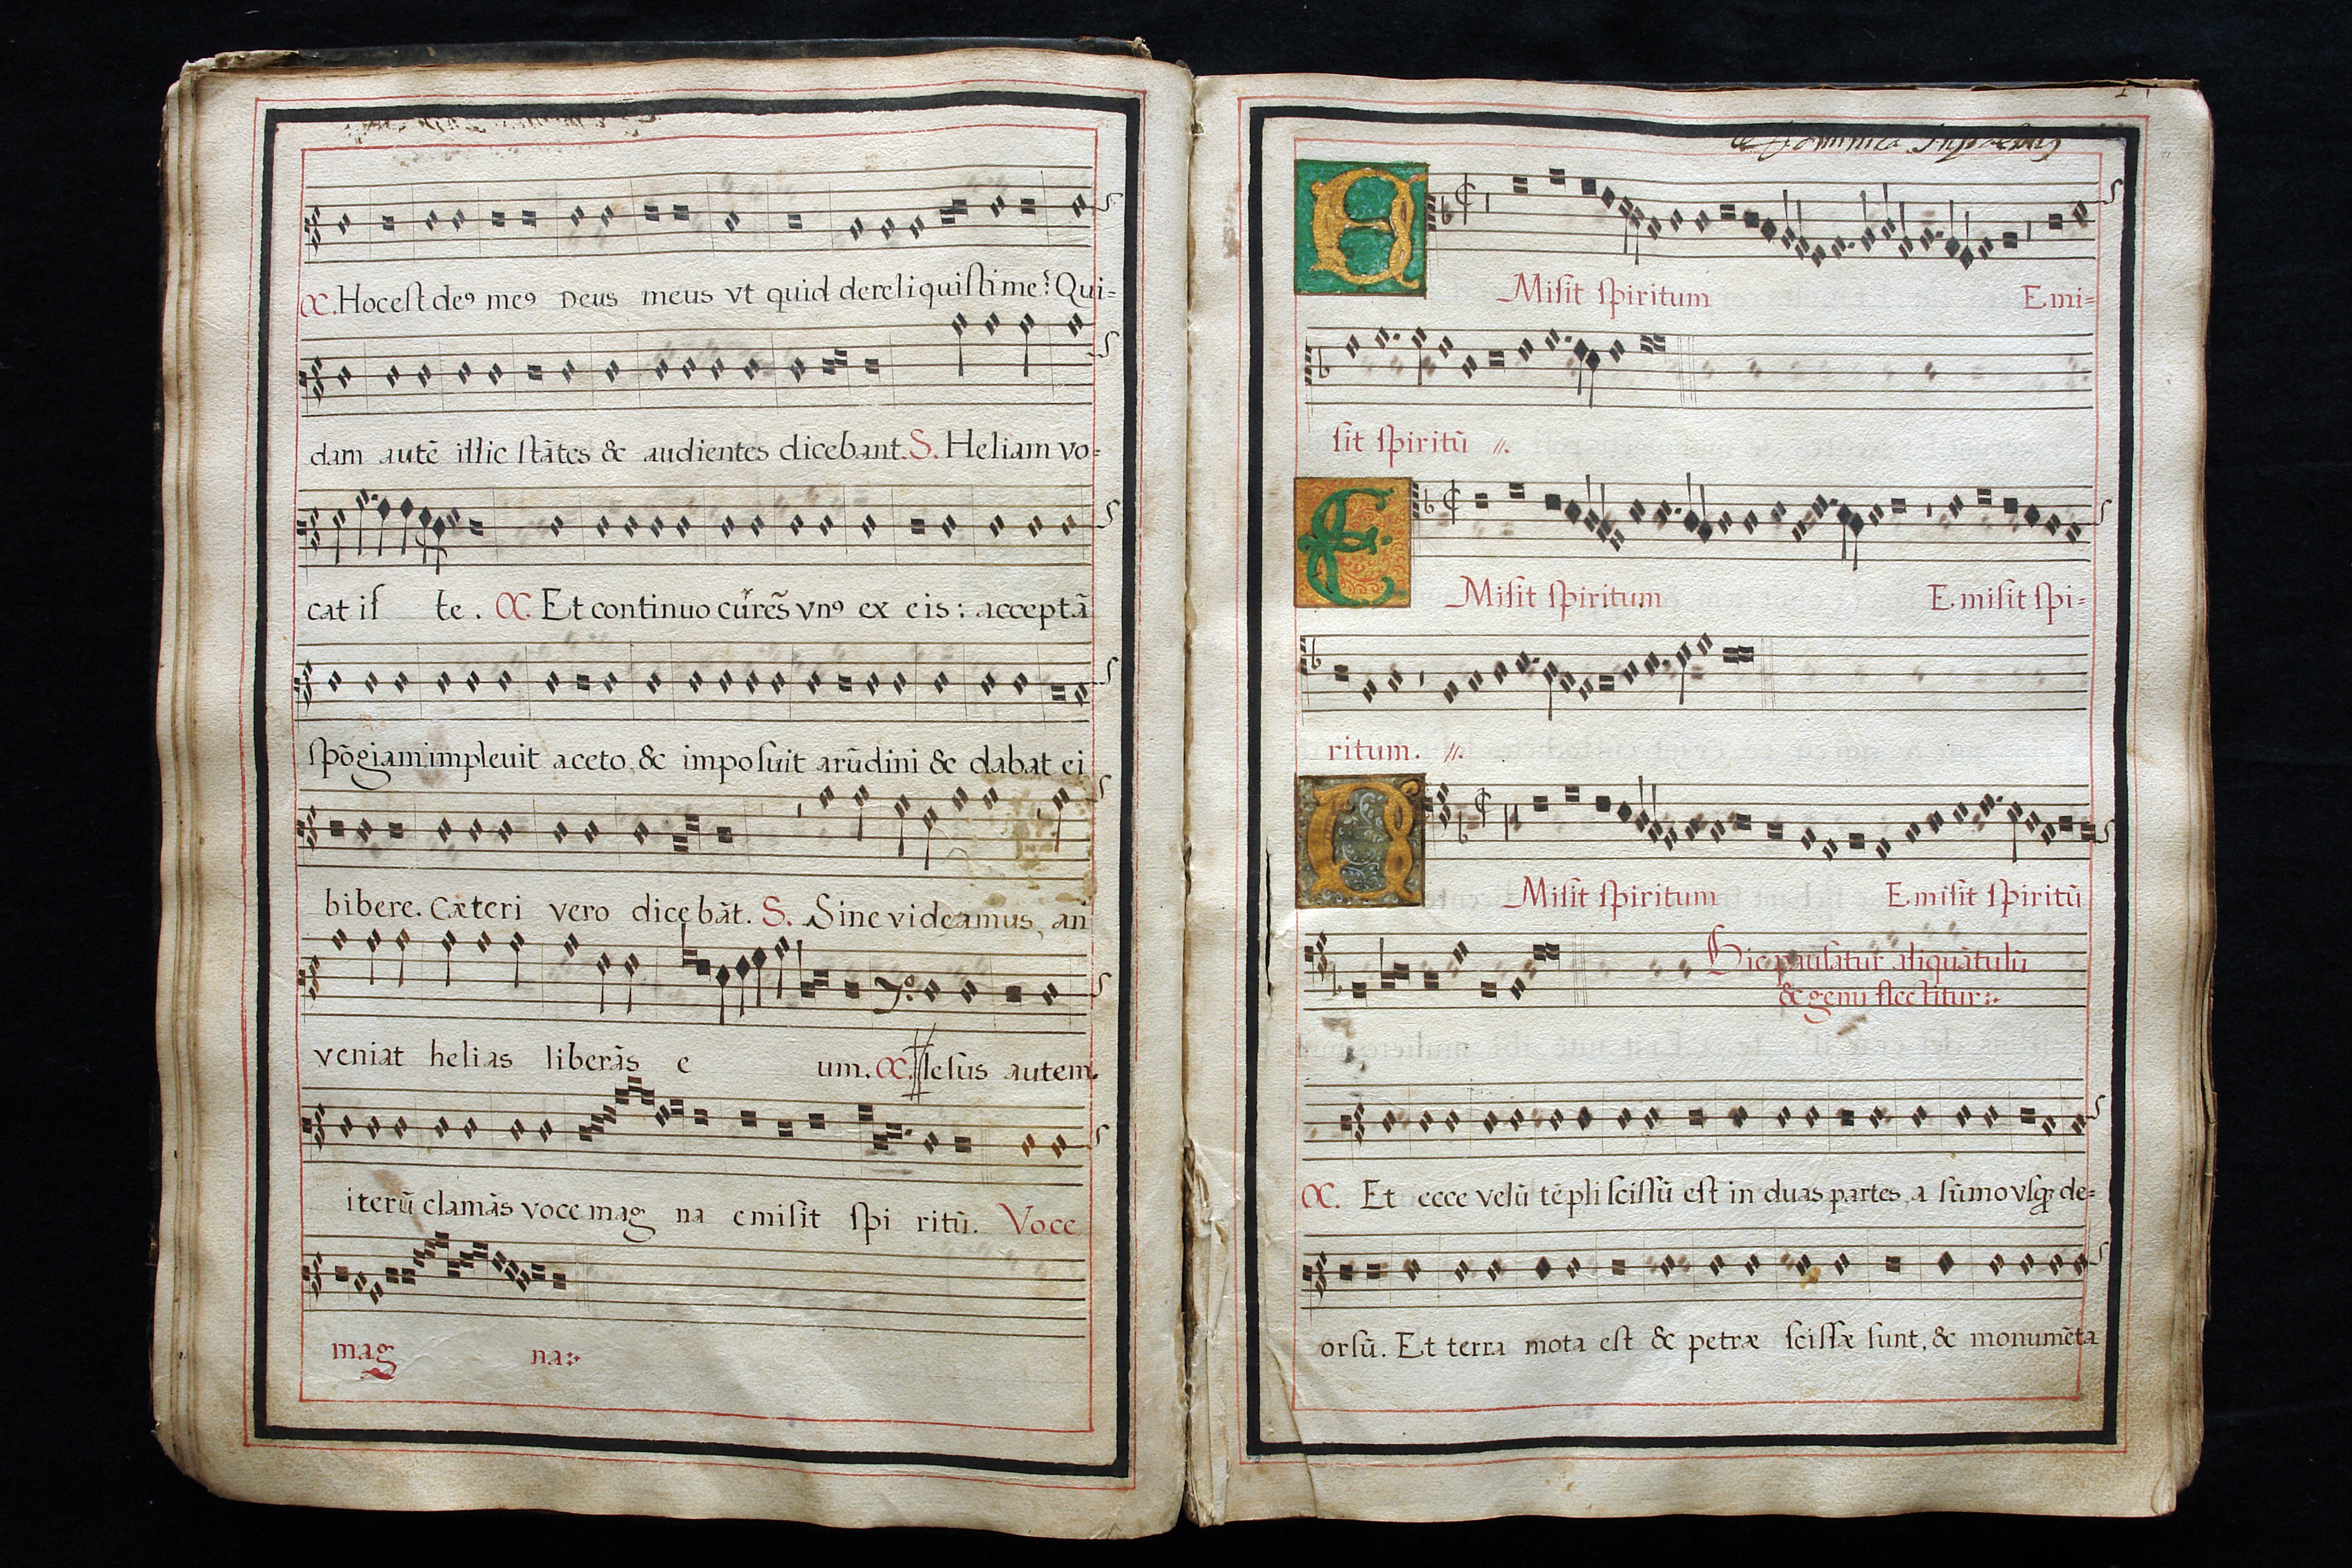 C. Hoc est deꝰ meꝰ Deus meus vt quid dereliquiſti me? Qui=
dam autē illic ſtātes & audientes dicebant. S. Heliam vo=
cat iſ te. C. Et continuo cūrēs vnꝰ ex eis: acceptā
ſpōgiam impleuit aceto, & impoſuit arūdini & dabat ei
bibere. Cæteri vero dicebāt. S. Sine videamus, an
veniat helias liberās e um. C. Ieſus autem.
iterū clamās voce mag na emiſit ſpi ritū. Voce
mag na:
de Dominica
E Miſit ſpiritum Emi=
ſit ſpiritū //.
E Miſit ſpiritum Emiſit ſpi=
ritum. //.
E Miſit ſpiritum Emiſit ſpiritū
Hic pauſatur aliquātulū
& genu flectitur:.
C. Et ecce velū tēpli ſciſſū eſt in duas partes, a ſūmo vſqꝫ de=
orſū. Et terra mota eſt & petræ ſciſſæ ſunt, & monumēta